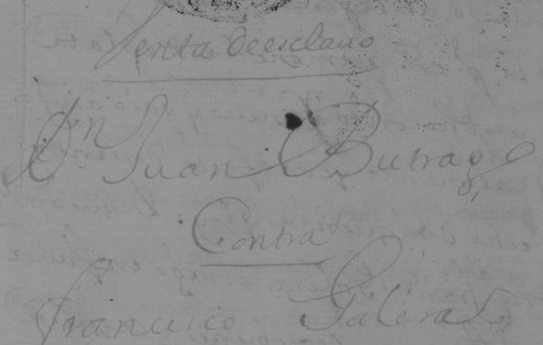 Venta de esclavo
Dn Juan Butrago
Contra
Francisco Galeras